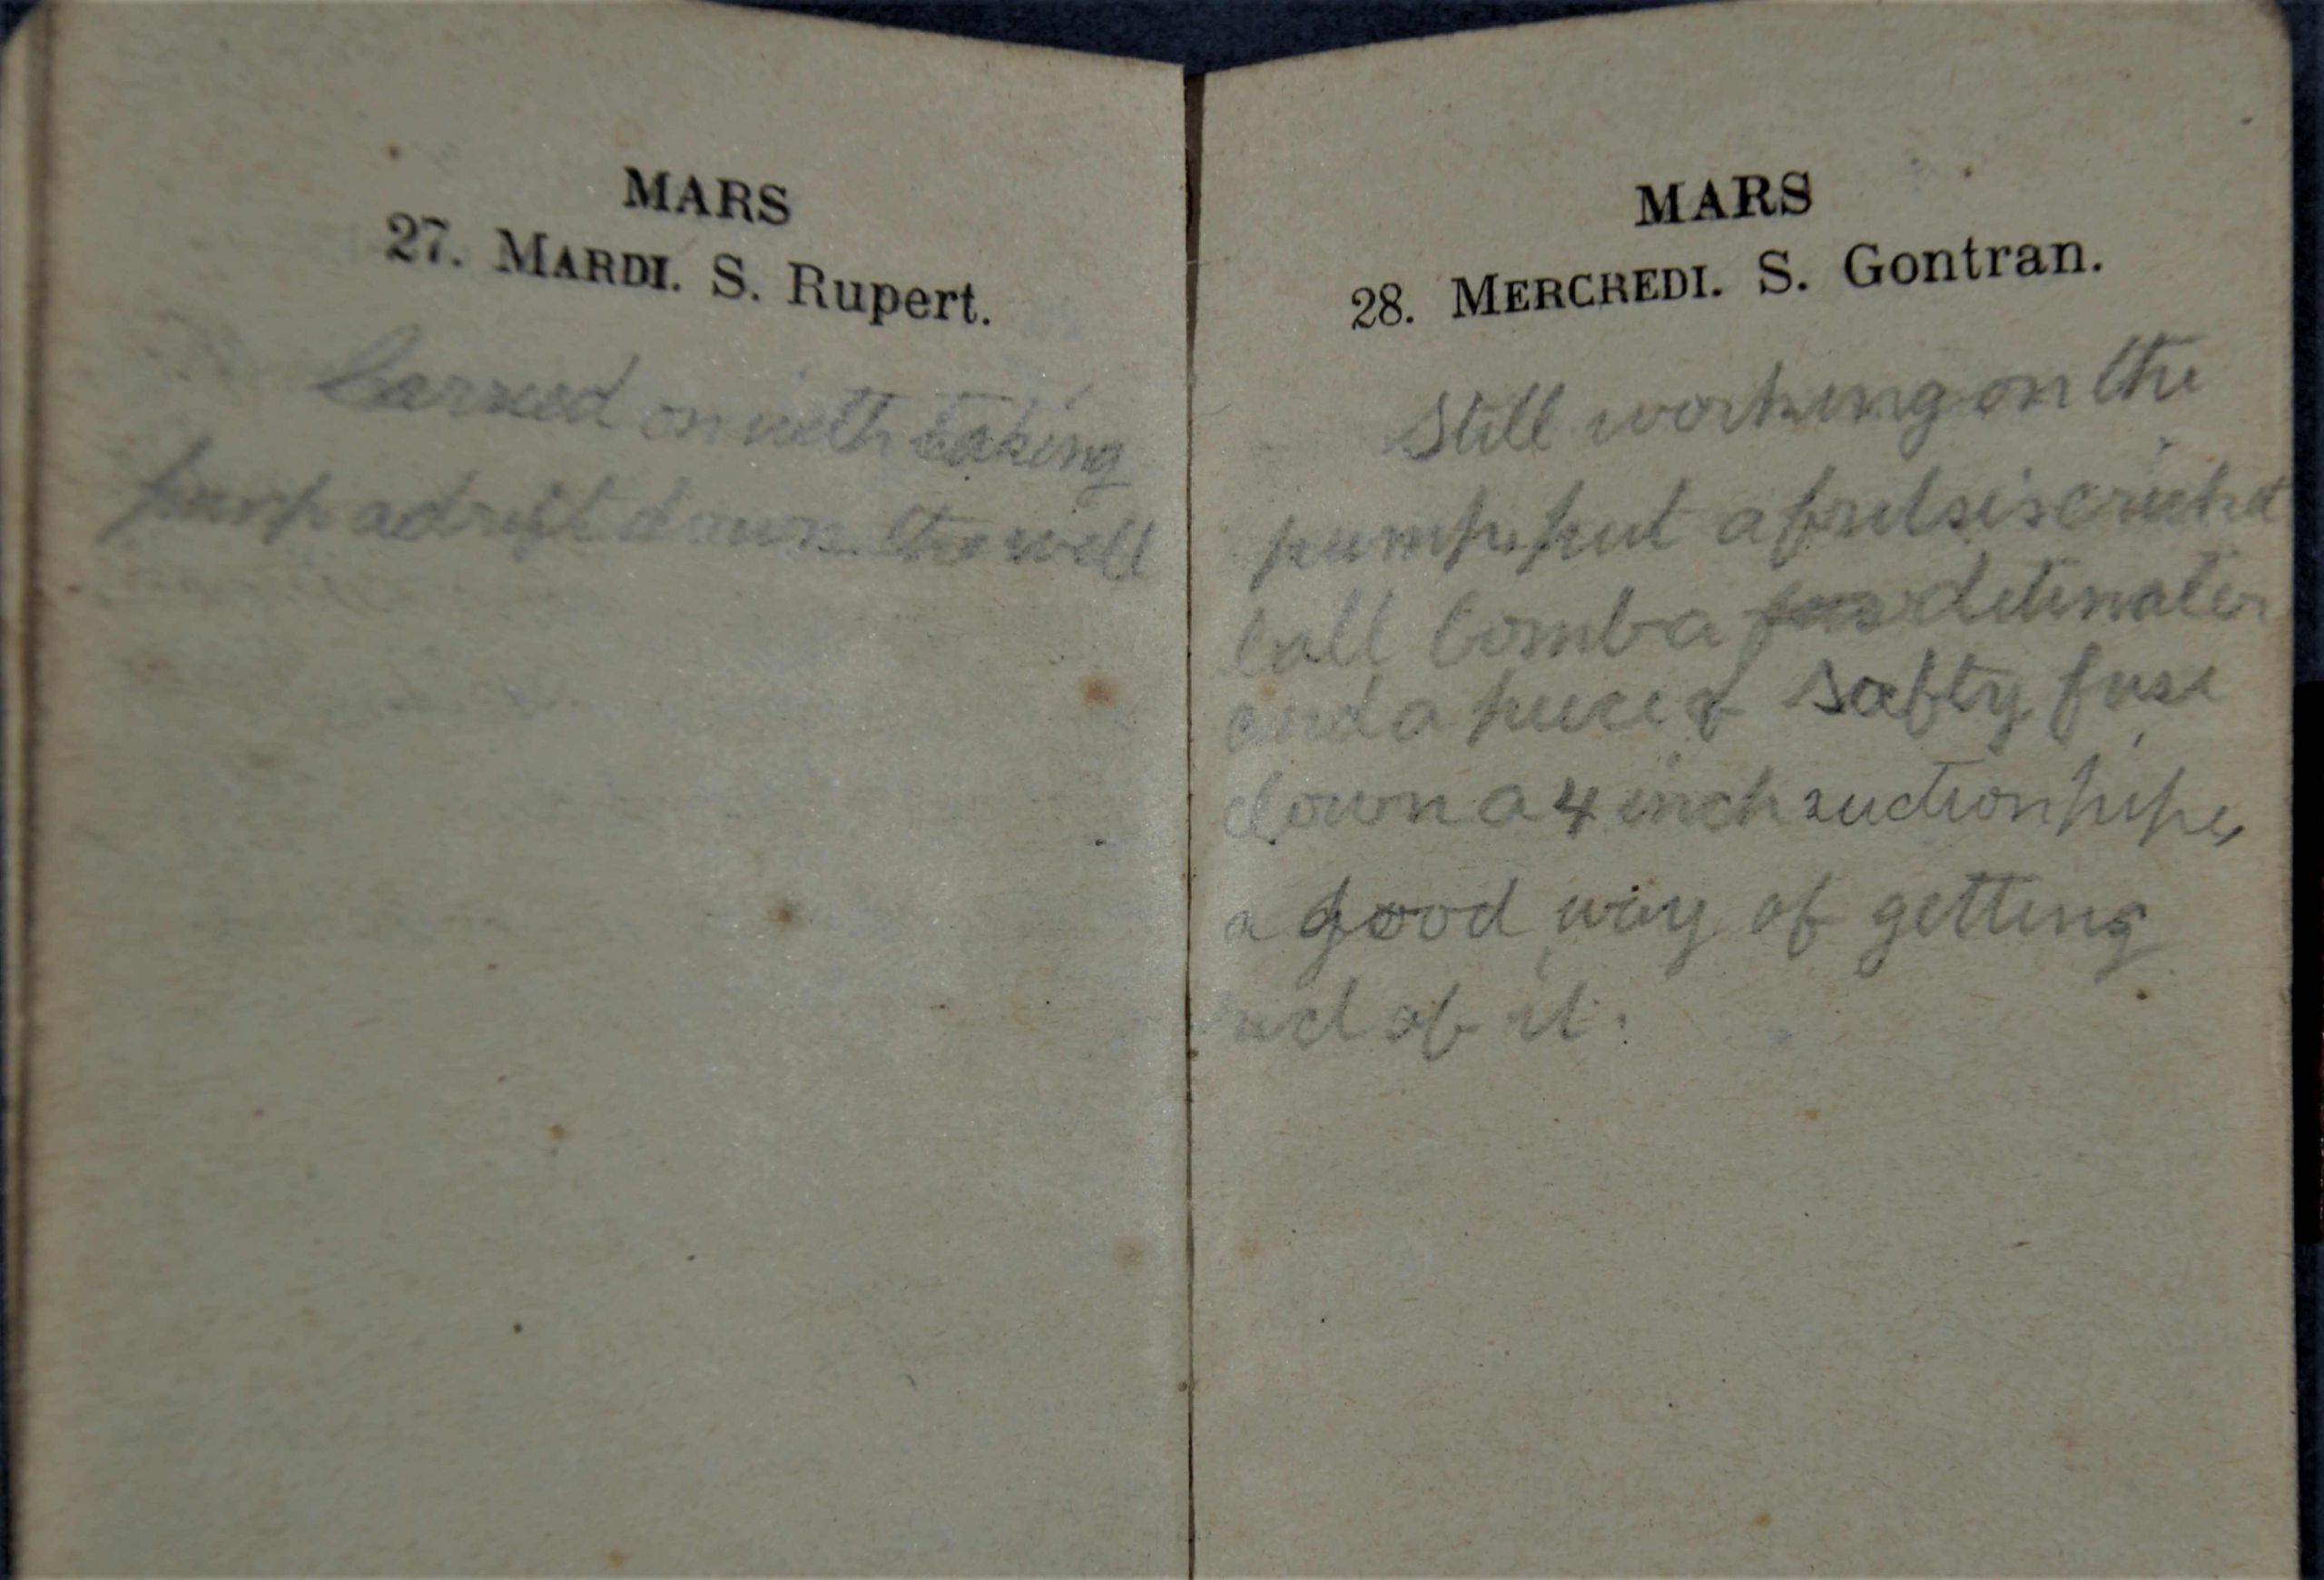 MARS
27. MARDI. S. Rupert.
Carried on with taking
pump adrift down the well
MARS
28. MERCREDI. S. Gontran.
Still working on the
pump, put a cricket
ball bomb a detinater
and a piece of safty fuse
down a 4 inch suction pipe,
a good way of getting
rid of it.